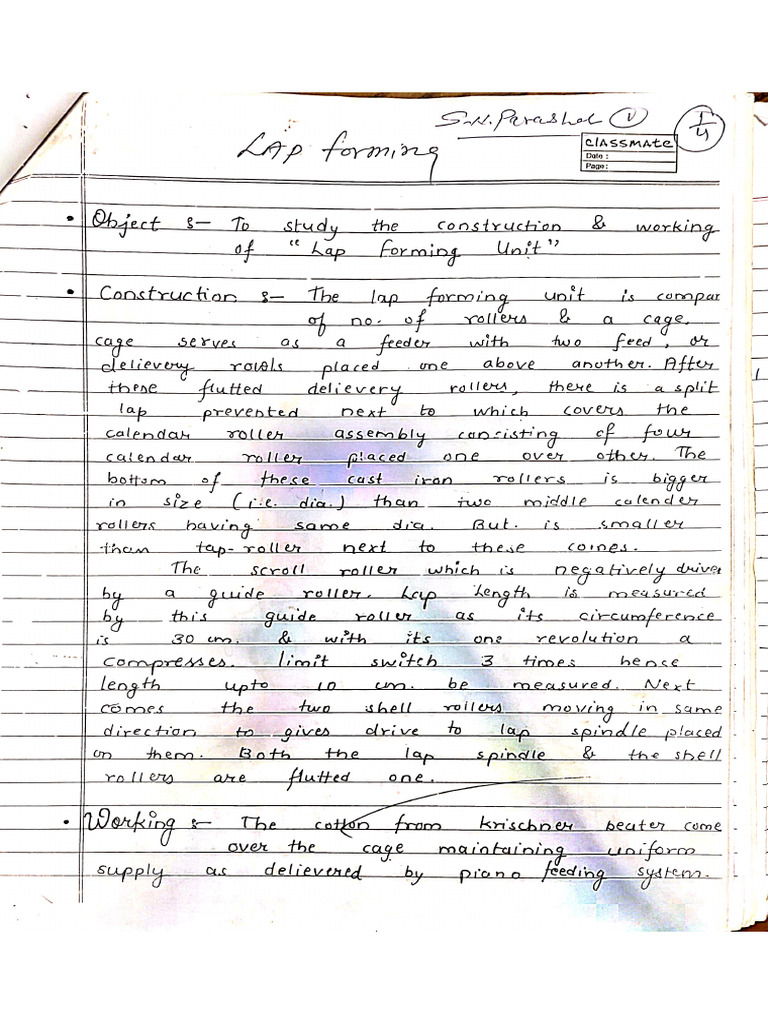 S.N. Parashar
Lap forming
CLASSMATE
Date :
Page :
• Object :- To study the construction & working
of "Lap Forming Unit"
• Construction :- The lap forming unit is compar
of no. of rollers & a cage,
cage serves as a feeder with two feed, or
delievery placed one above another. After
these flutted delievery rollers, there is a split
lap prevented next to which covers the
calendar roller assembly consisting of four
calendar roller placed one over other. The
bottom of these cast iron rollers is bigger
in size (i.e. dia.) than two middle calender
rollers having same dia. But is smaller
than tap-roller next to these coines.
The scroll roller which is negatively driven
by a guide roller. Lap Length is measured
by this guide roller as its circumference
is 30 cm. & with its one revolution a
compresses. limit switch 3 times hence
length upto 10 cm. be measured. Next
comes the two shell rollers moving in same
direction to gives drive to lap spindle placed
on them. Both the lap spindle & the shell
rollers are flutted one.
• Working :- The cotton from krischner beater come
over the cage maintaining uniform
supply as delievered by piano feeding system.